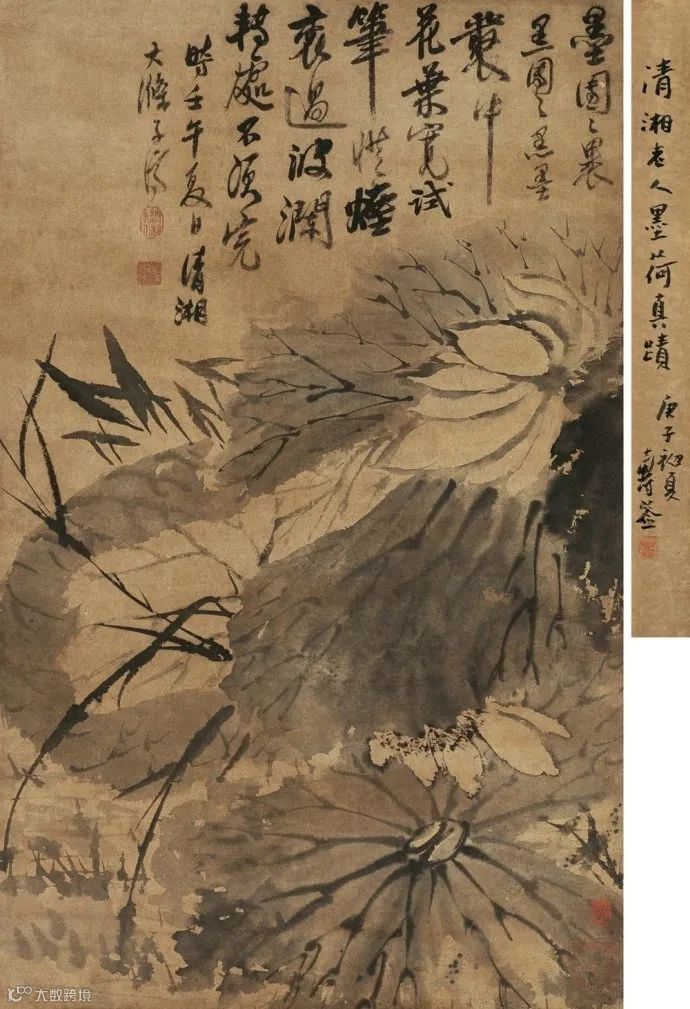 墨團〻裏
黑團〻黑墨
叢中
花葉寬試
筆從煙
裏過波瀾
轉處不須完
時壬午夏日清湘
大滌子濟
清湘老人墨荷真蹟
庚子初夏
簽
大数跨境